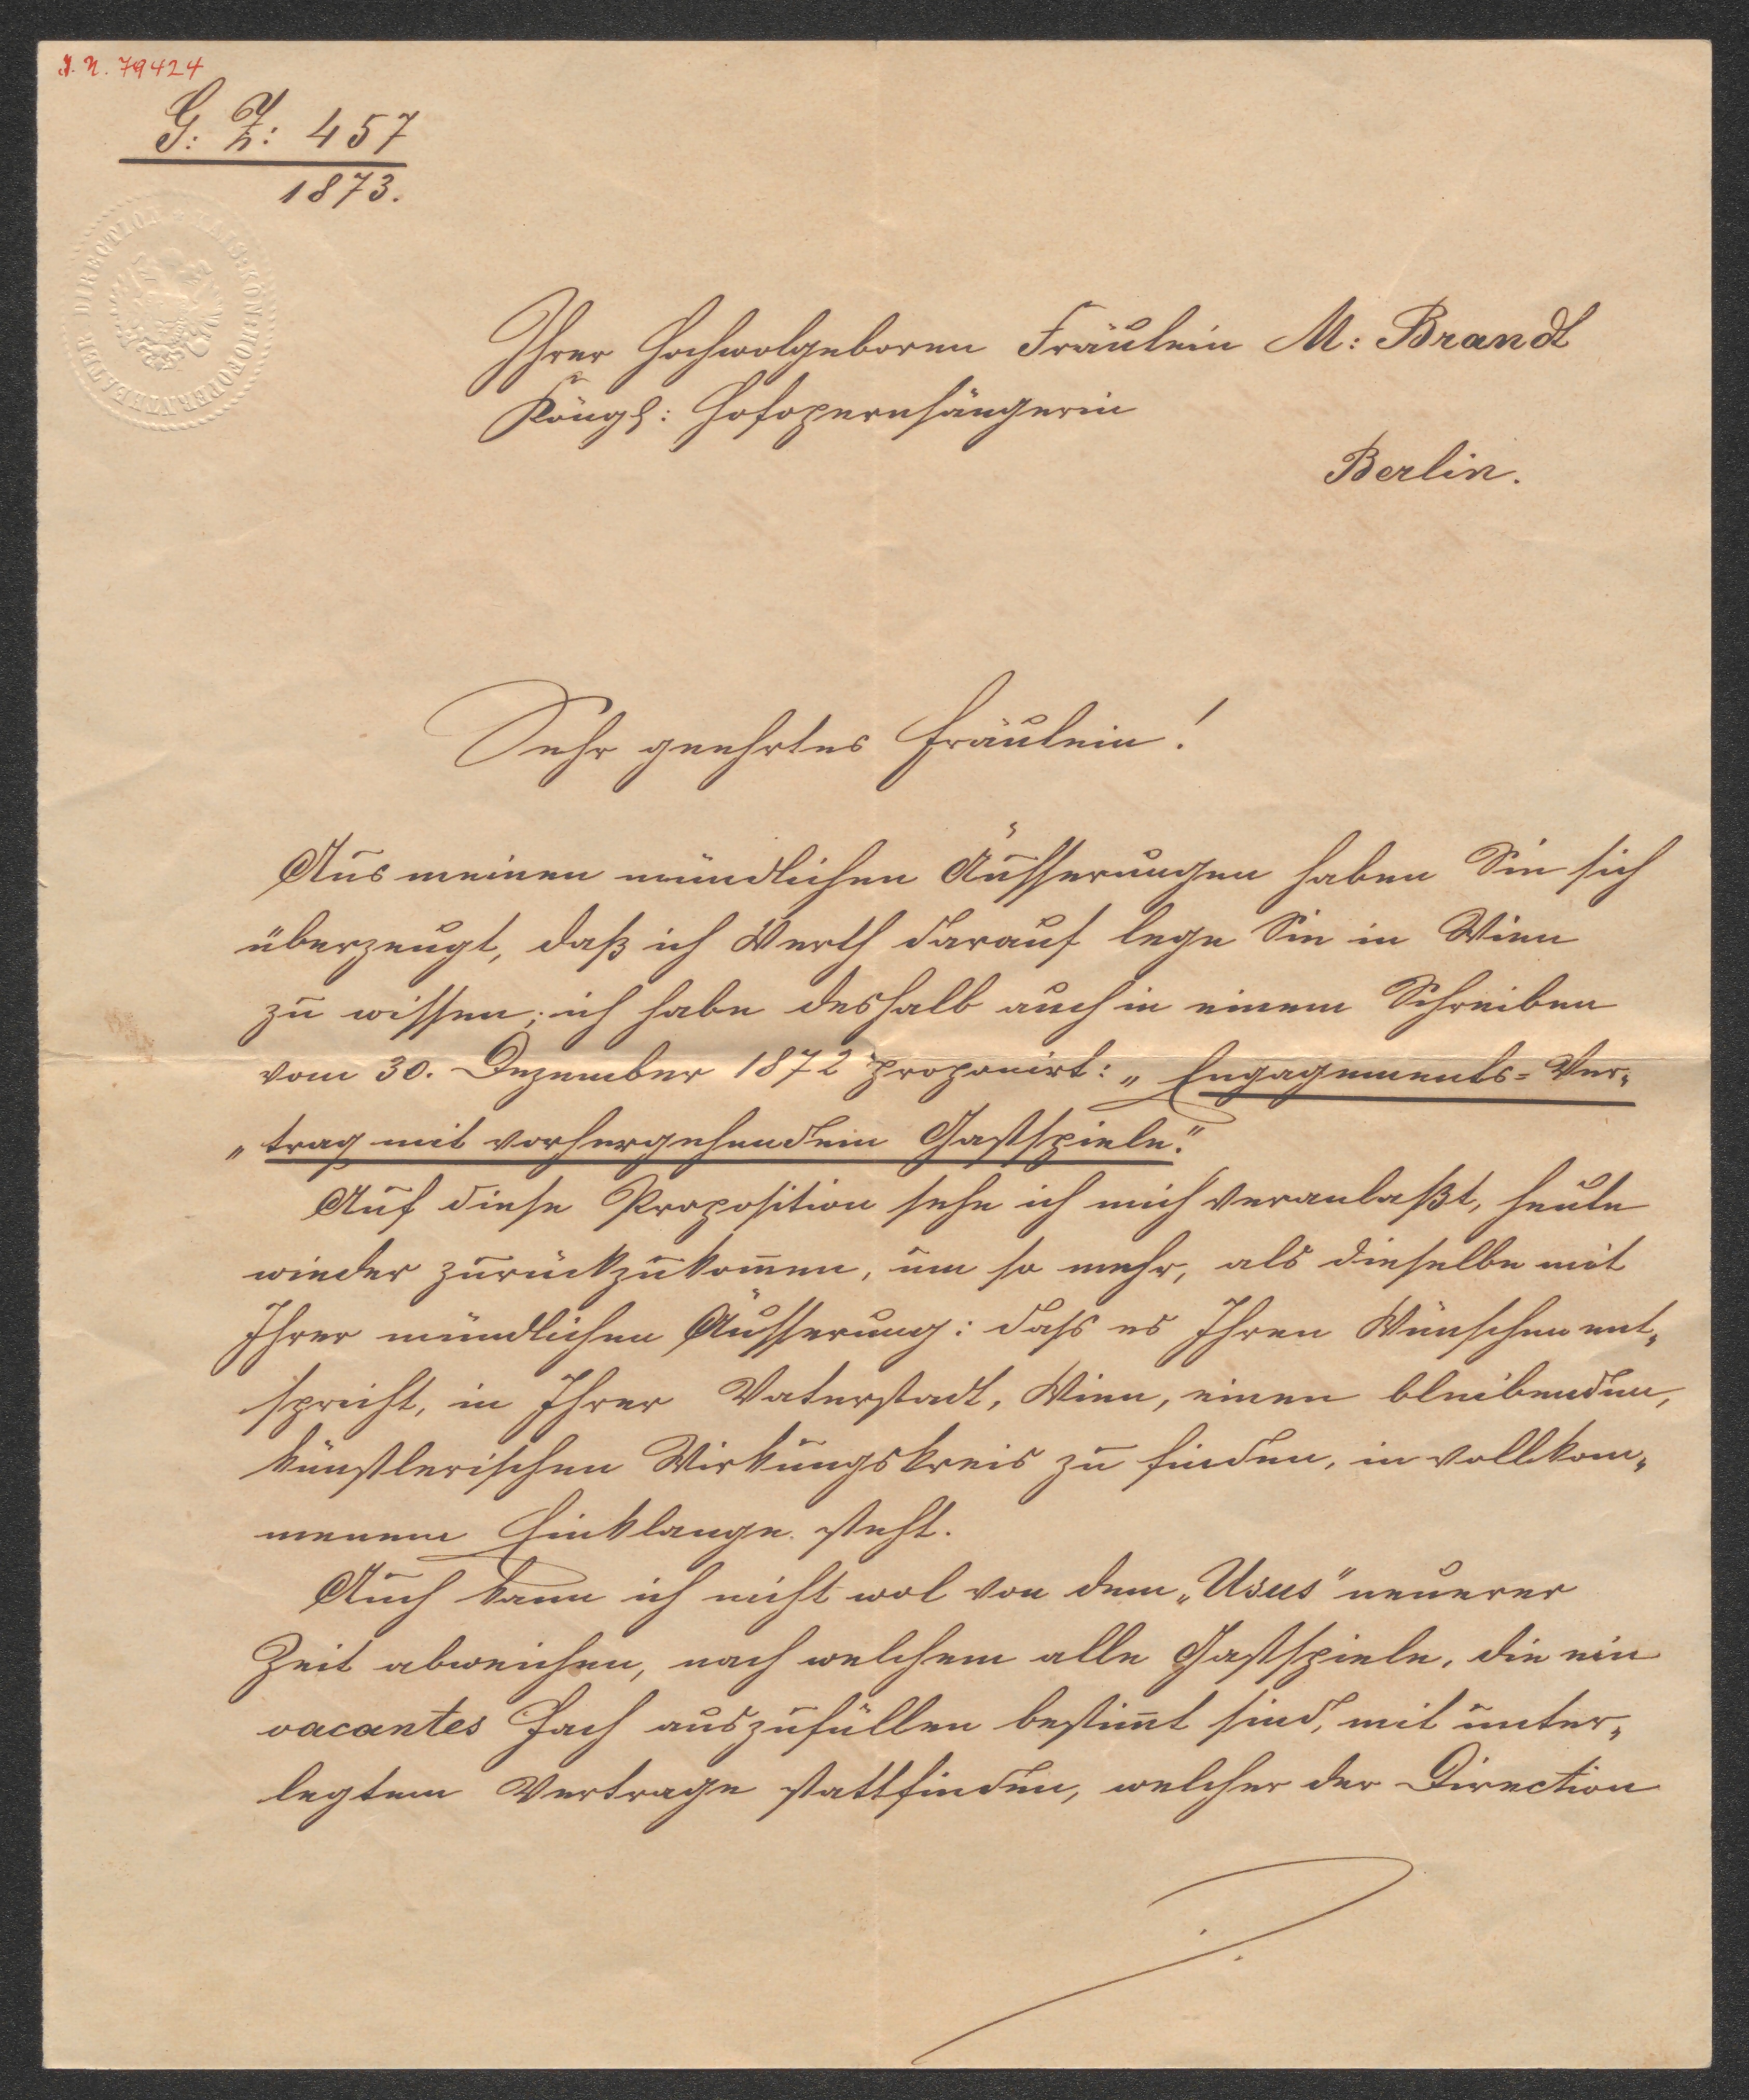 I. N. 79424
G: Z: 457
1873.
KAIS: KÖN: HOFOPERNTHEATER DIRECTION
Ihrer Hochwolgeboren Fräulein M: Brandt
Köngl: Hofopernsängerin
Berlin.
Sehr geehrtes Fräulein!
Aus meinen mündlichen Äusserungen haben Sie sich
überzeugt, daß ich Werth darauf lege Sie in Wien
zu wissen; ich habe deshalb auch in einem Schreiben
vom 30. Dezember 1872 proponirt: „Engagements=Ver-
„trag mit vorhergehendem Gastspiele."
Auf diese Proposition sehe ich mich veranlaßt, heute
wieder zurückzukom̅en, um so mehr, als dieselbe mit
Ihrer mündlichen Äusserung: dass es Ihren Wünschen ent-
spricht, in Ihrer Vaterstadt, Wien, einen bleibenden,
künstlerischen Wirkungskreis zu finden, in vollkom-
menem Einklange steht.
Auch kann ich nicht wol von dem „Usus" neuerer
Zeit abweichen, nach welchem alle Gastspiele, die ein
vacantes Fach auszufüllen bestim̅t sind, mit unter-
legtem Vertrage stattfinden, welcher der Direction